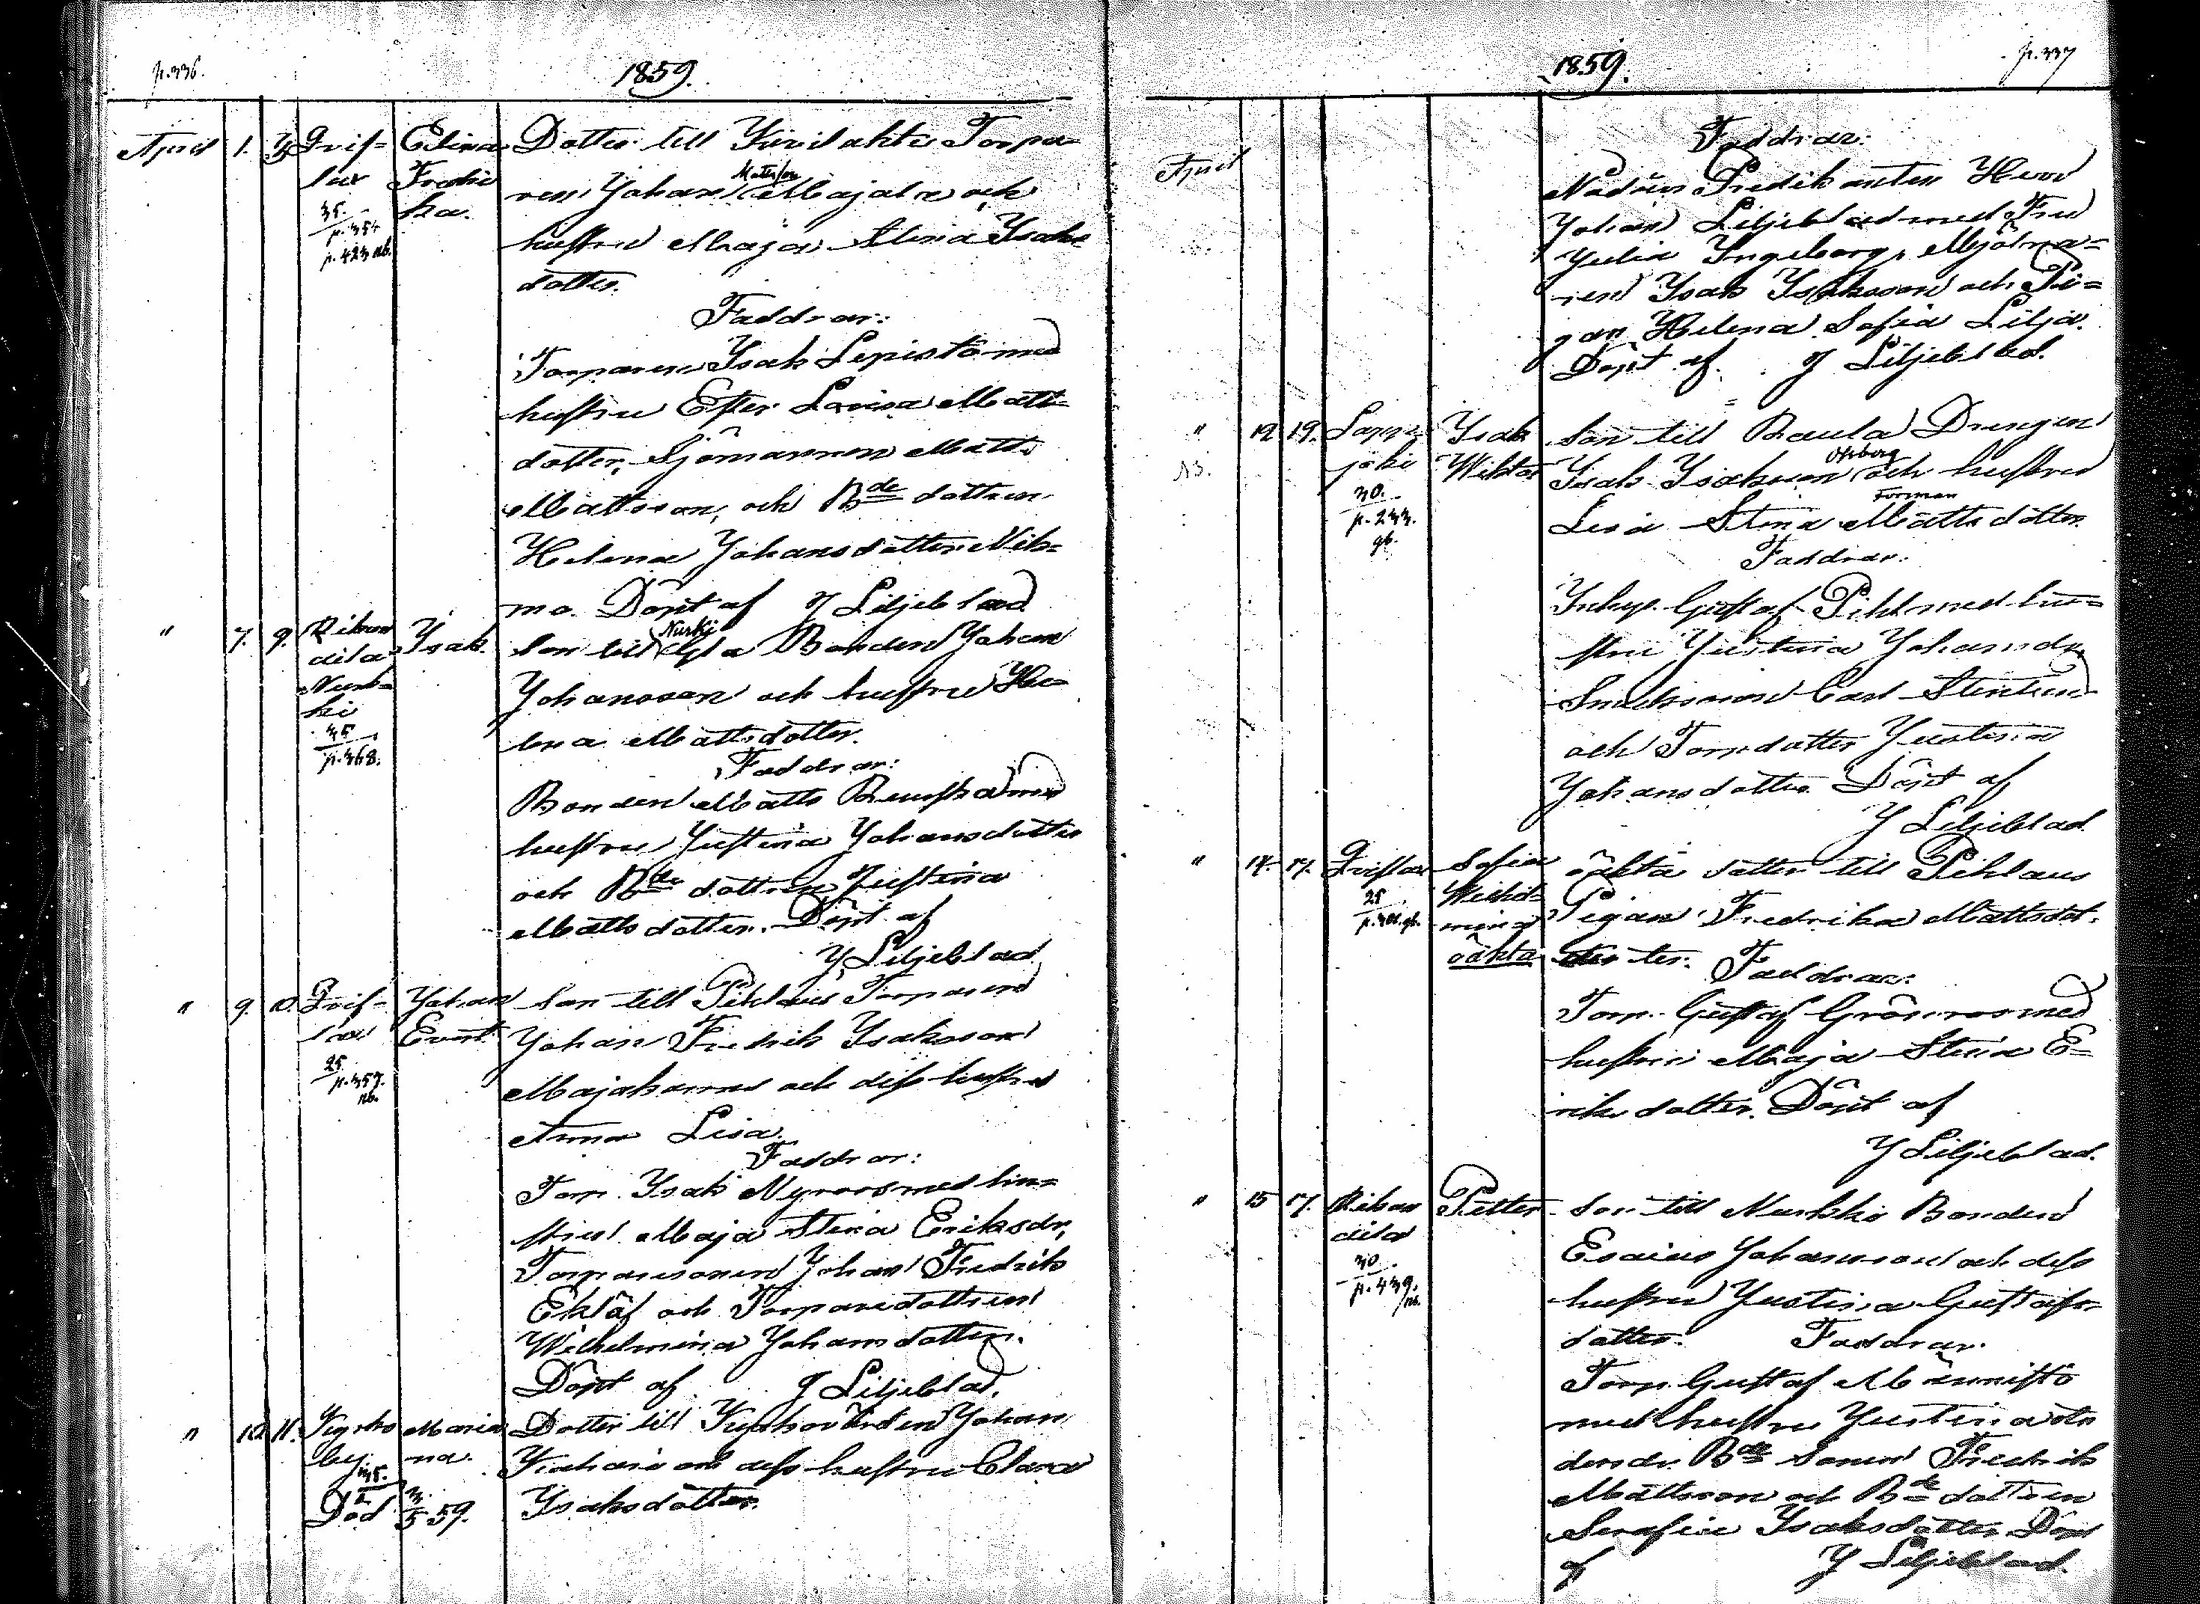 p. 336.
1859.
April 1. 3/5 Qvif-
lax
35.
p. 354
p. 423 nb.
Elina
Fredri
ka.
Dotter till Torpa-
ren Johan Mattsson Majala och
hustru Maja Stina Isaks-
dotter.
Faddrar:
Torparen Isak Lepistö med
hustru Ester Lovisa Matts-
dotter, Sjömannen Matts
Mattsson, och Bde dottren
Helena Johansdotter Nib-
mo. Döpt af J Liljeblad
" 7. 9.
dila
Nurk-
ki
35
p. 368.
Isak.
Son till Nurkj Bonden Johan
Johansson och hustru He-
lena Mattsdotter.
Faddrar:
Bonden Matts med
hustru Justina Johansdotter
och Bde dottren Justina
Mattsdotter. Döpt af
J Liljeblad
" 9. 10. Qvif-
lax
25.
p. 357.
nb.
Johan
Evert.
Son till Pihlaus Torparen
Johan Fredrik Isaksson
och dess hustru
Anna Lisa.
Faddrar:
Torp. Isak Nyroos med hu-
stru Maja Stina Eriksdr,
Torparesonen Johan Fredrik
Eklöf och Torparedottren
Wilhelmina Johansdotter.
Döpt af J Liljeblad.
" 10. 11. Kyrko
by
35.
2
Död 3/5 59.
Maria
na.
Dotter till Johan
och dess hustru Clara
Isaksdotter.
p. 337
1859.
April
Faddrar:
Nådårs Predikanten Herr
Johan Liljeblad med Fru
Julia Ingeborg, Mjölna-
ren Isak Isaksson och Pi-
gan Helena Sofia Lilja.
Döpt af J Liljeblad.
" 12 19. Lapp-
joki
30.
p. 233.
gb.
N3.
Isak
Wiktor
Son till Raula Drengen
Isak Isaksson och hustru
Lisa Stina Forsman Mattsdotter
Faddrar:
Inhys. Gustaf Pihl med hu-
stru Justina Johansdr,
Carl Stenlund
och Torp dotter Justina
Johansdotter. Döpt af
J Liljeblad
" 14. 17. Qviflax
25
Sofia
Wilhel-
mina
oäkta
oäkta dotter till Pihlaus
Pigan Fredrika Mattsdot-
ter. Faddrar:
Torp. Gustaf Grönroos med
hustru Maja Stina E-
riksdotter. Döpt af
J Liljeblad.
" 15 17.
dila
30
p. 439.
nb.
Petter
Son till Nurkki Bonden
Esaias Johansson och dess
hustru Justina Gustafs-
dotter. Faddrar.
Torp. Gustaf Männistö
med hustru Justina
Bde Sonen Fredrik
Mattsson och Bde dottren
Serafia Isaksdotter Döpt
af J Liljeblad.